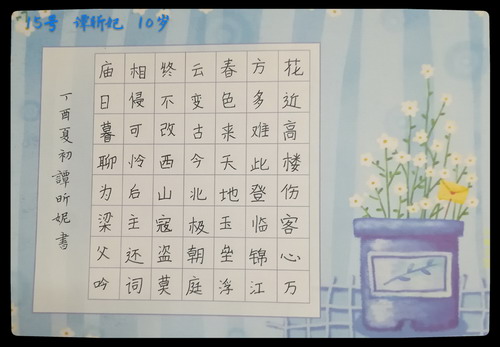 15号 谭昕妮 10岁
花近高楼伤客心万
方多难此登临锦江
春色来天地玉垒浮
云变古今北极朝庭
终不改西山寇盗莫
相侵可怜后主还词
庙日暮聊为梁父吟
丁酉夏初譚昕妮書